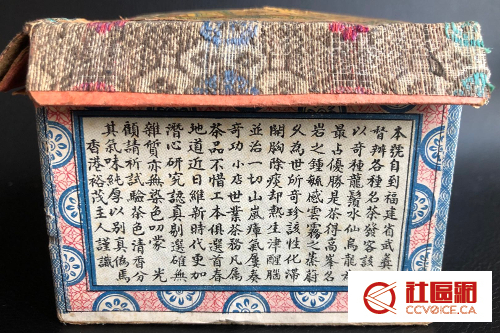 本號自到福建省武彝
督辦各種名茶發客該
以奇種龍鬚水仙烏龍
最占優勝是茶得高峯名
岩之鍾毓感雲霧之蒸蔚
久為世所奇珍該性化滯
開胸除痰却熱生津醒腦
並治一切山嵐瘴氣屢奏
奇功小店世業茶務凡属
茶品不惜工本俱選首春
地道近日維新時代更加
潛心研究認真剔選確無
雜質亦無染色叨蒙 光
顧請祈試驗茶色清香分
其氣味純厚以別真偽焉
香港裕茂主人謹識
社區網
CCVOICE.CA